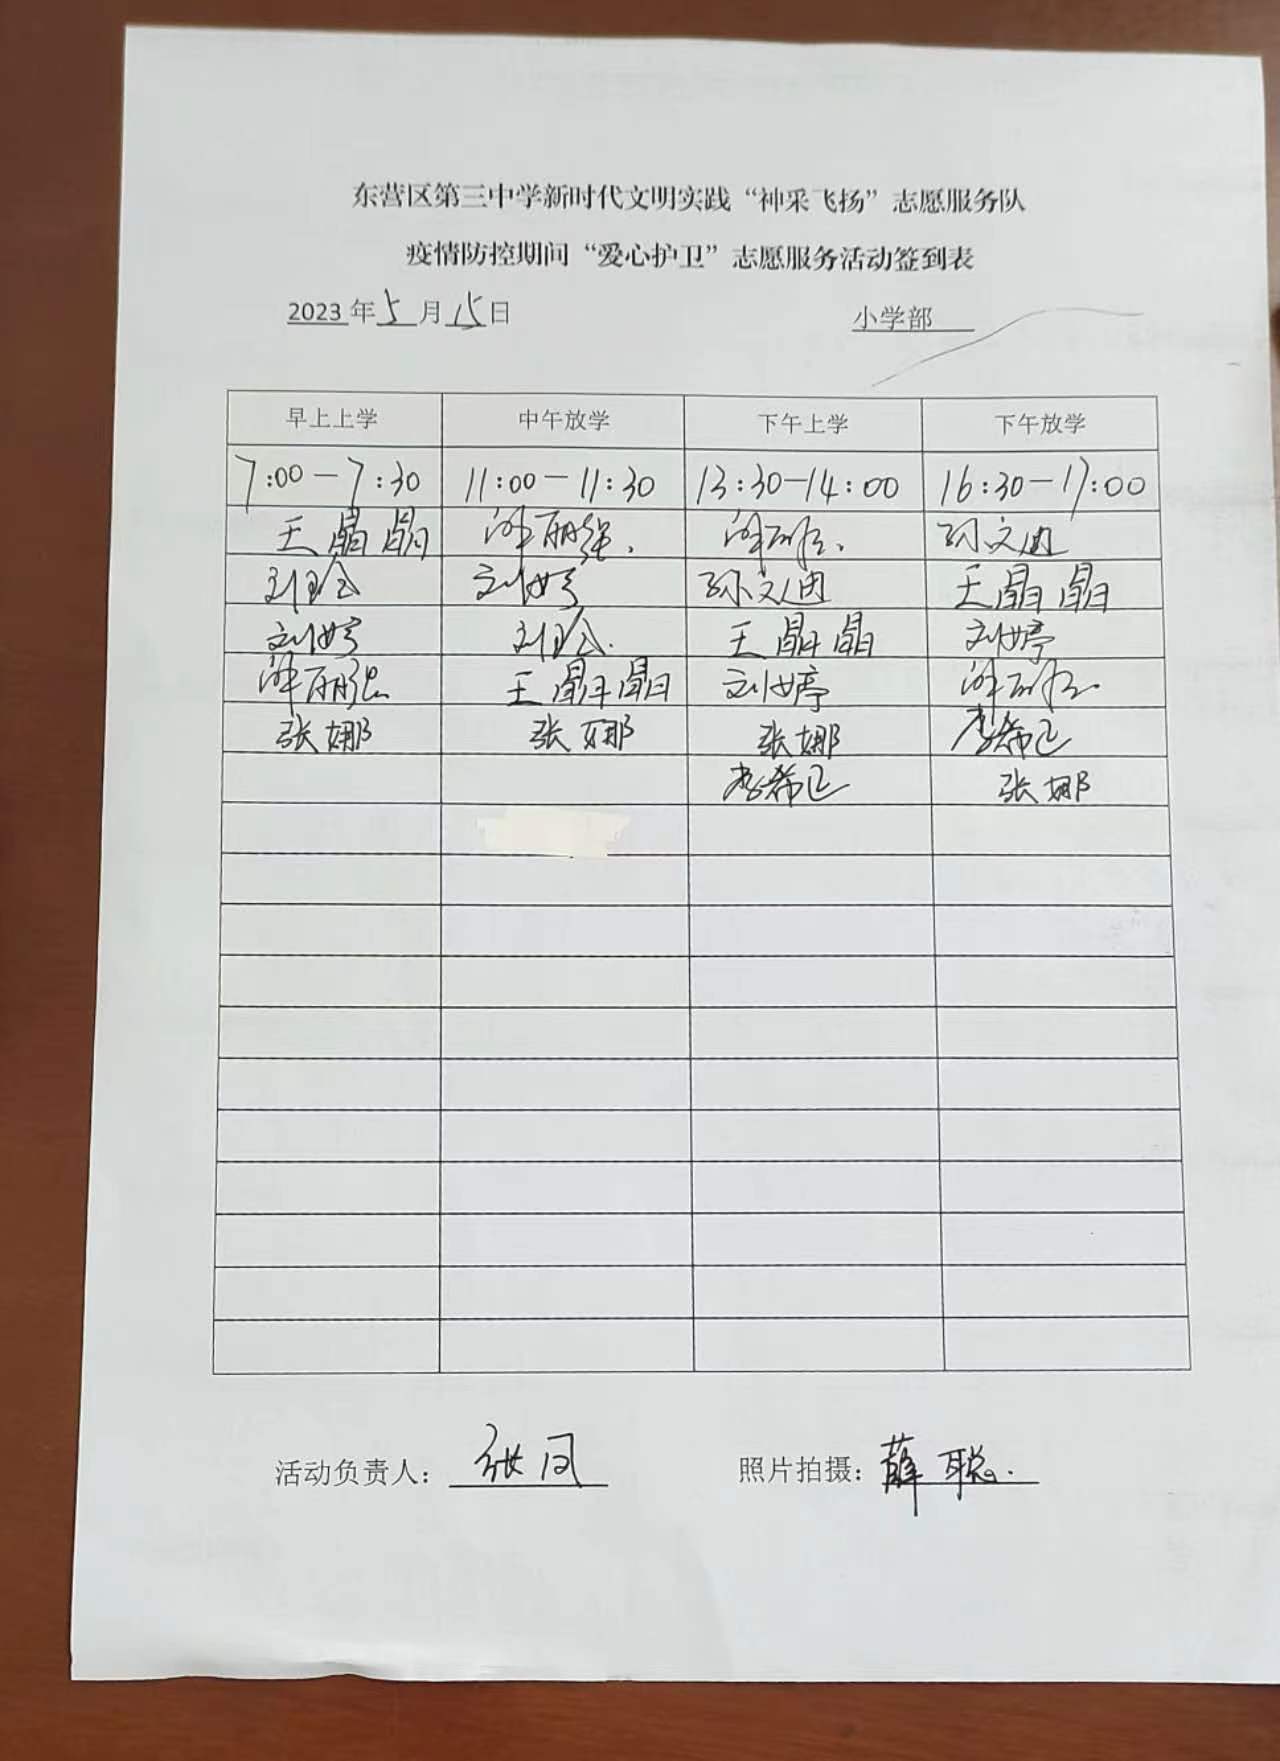 东营区第三中学新时代文明实践“神采飞扬”志愿服务队
疫情防控期间“爱心护卫”志愿服务活动签到表
2023年5月15日 小学部
早上上学 中午放学 下午上学 下午放学
7:00-7:30 11:00-11:30 13:30-14:00 16:30-17:00
王晶晶 孙文迪
刘婷 孙文迪 王晶晶
刘婷 王晶晶 刘婷
王晶晶 刘婷
张娜 张娜 张娜 李希
李希 张娜
活动负责人: 张凤 照片拍摄: 薛聪.